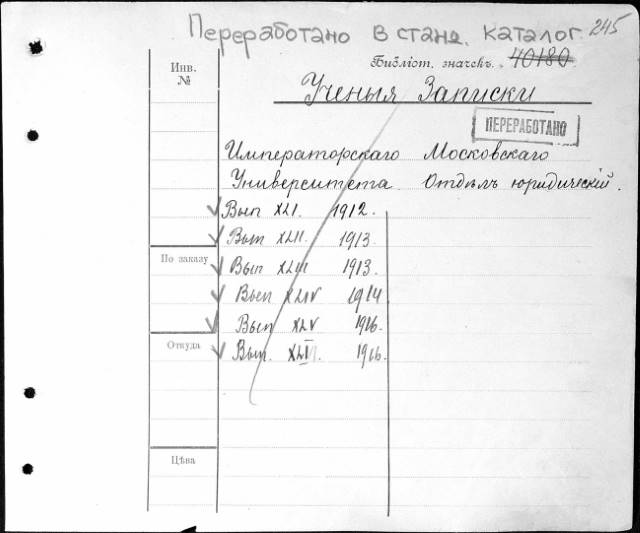 Переработано в станд. каталог. 245
Библіот. значекъ. 40180.
Инв.
№
Ученыя Записки
ПЕРЕРАБОТАНО
Императорскаго Московскаго
Университета. Отдѣлъ юридическій.
Вып XLI. 1912.
Вып XLII. 1913.
По заказу
Вып XLIII 1913.
Вып XLIV 1914
Вып XLV 1916.
Откуда
Вып. XLVI. 1916.
Цѣна